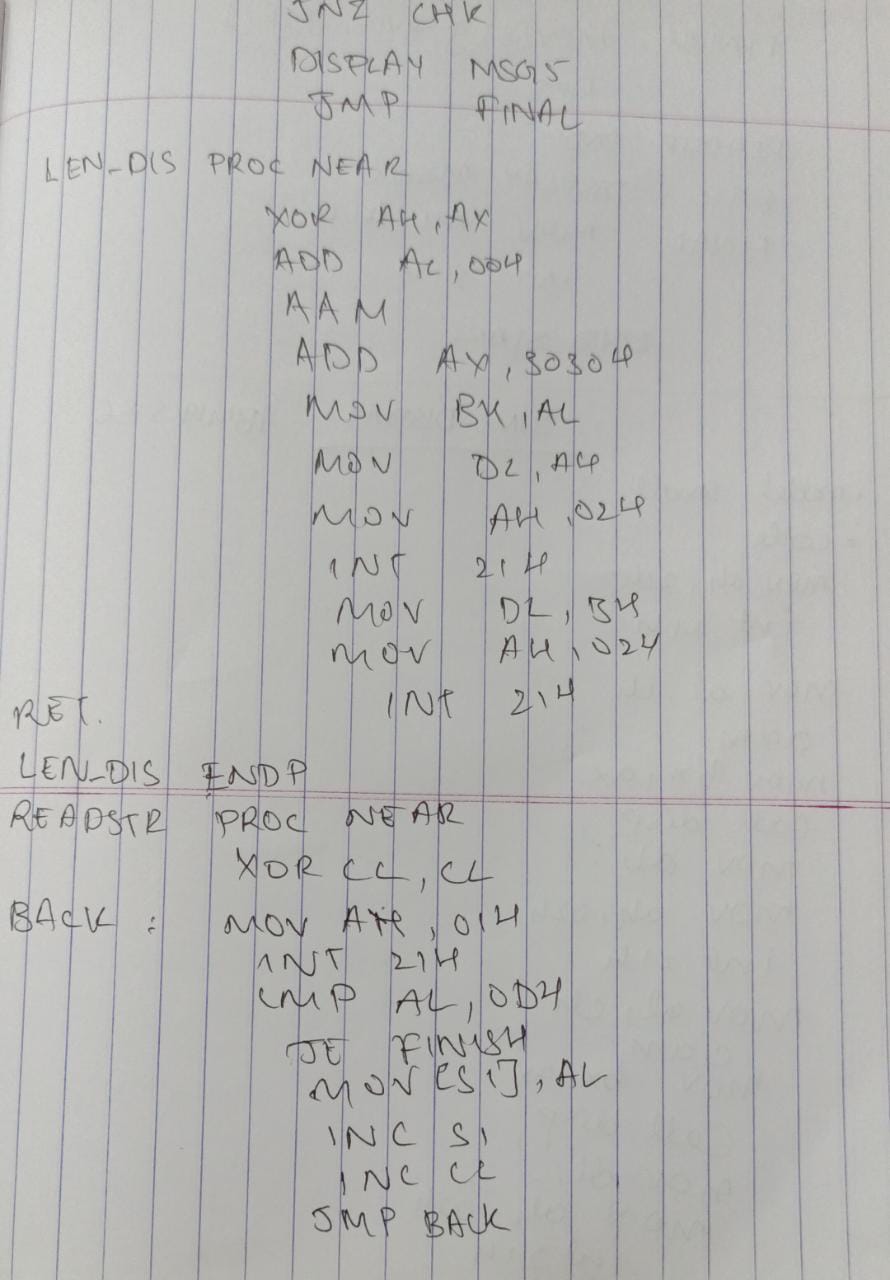 JNZ CHK
DISPLAY MSG5
JMP FINAL
LEN_DIS PROC NEAR
XOR AH, AX
ADD AL, 00H
AAM
ADD AX, 3030H
MOV BH, AL
MOV DL, AH
MOV AH, 02H
INT 21H
MOV DL, BH
MOV AH, 02H
INT 21H
RET.
LEN_DIS ENDP
READSTR PROC NEAR
XOR CL, CL
BACK : MOV AH, 01H
INT 21H
CMP AL, 0DH
JE FINISH
MOV [SI], AL
INC SI
INC CL
JMP BACK